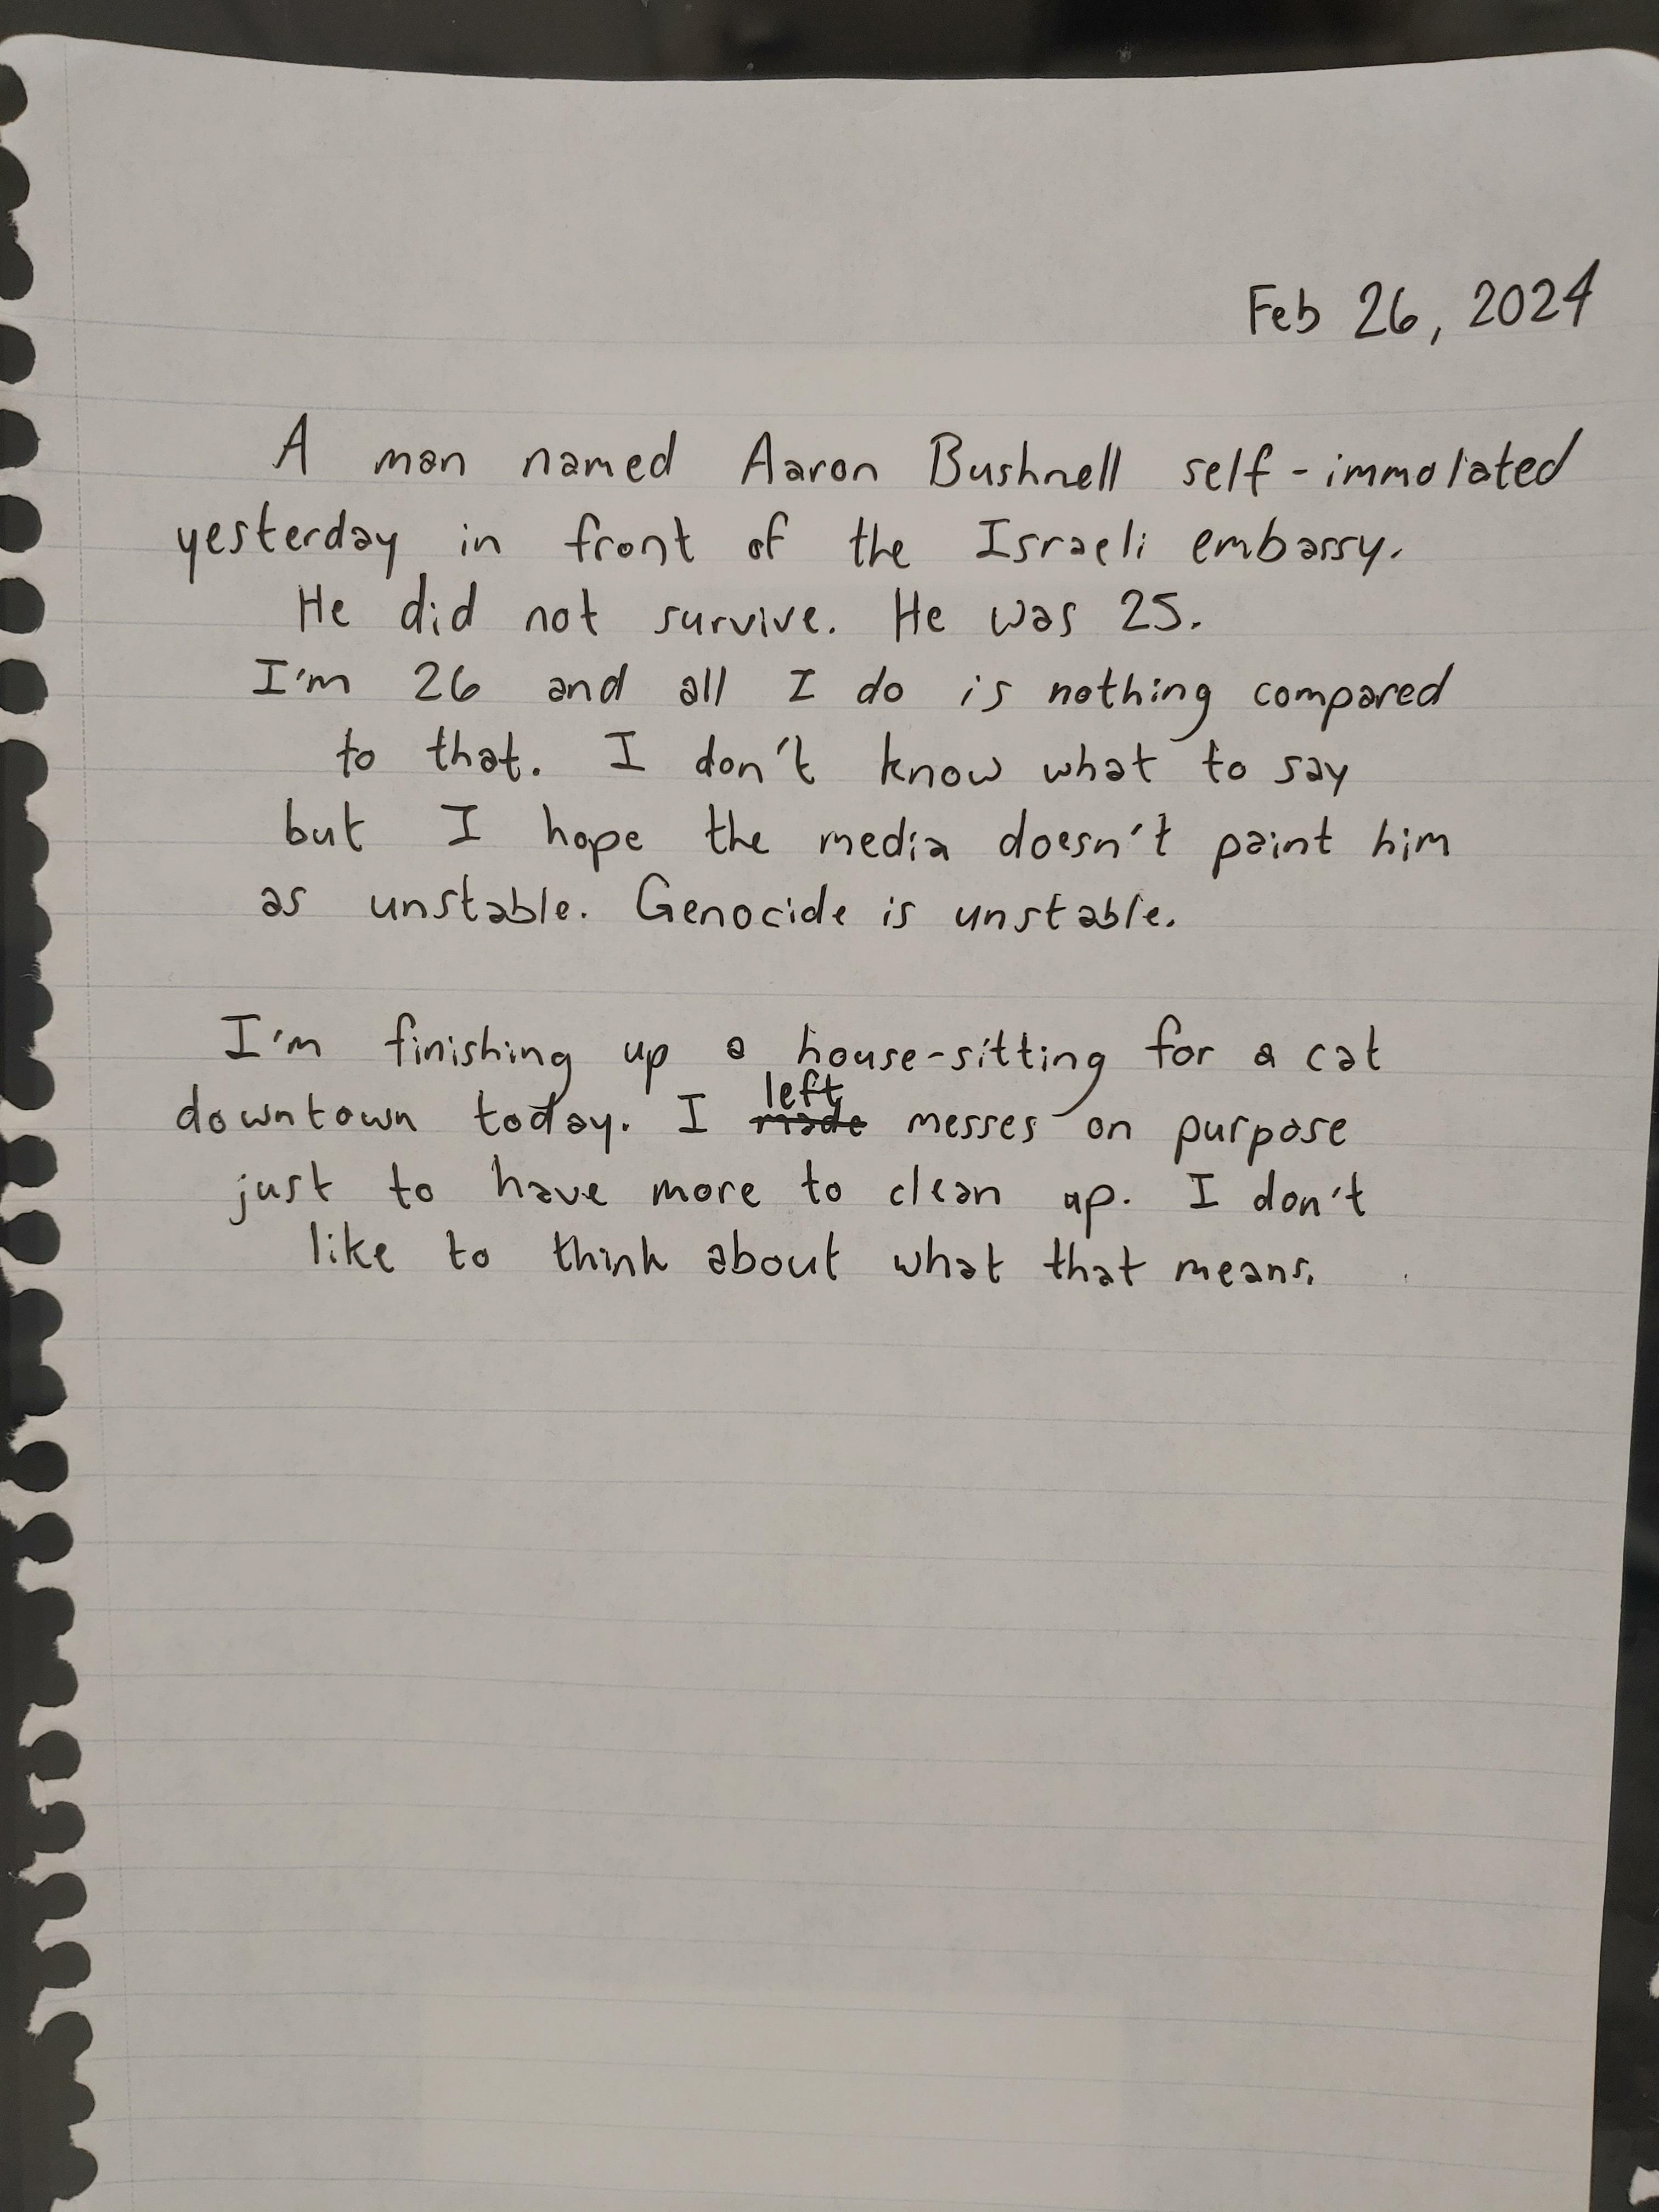 Feb 26, 2024
A man named Aaron Bushnell self-immolated
yesterday in front of the Israeli embassy.
He did not survive. He was 25.
I'm 26 and all I do is nothing compared
to that. I don't know what to say
but I hope the media doesn't paint him
as unstable. Genocide is unstable.
I'm finishing up a house-sitting for a cat
left
downtown today. I made messes on purpose
just to have more to clean up. I don't
like to think about what that means.